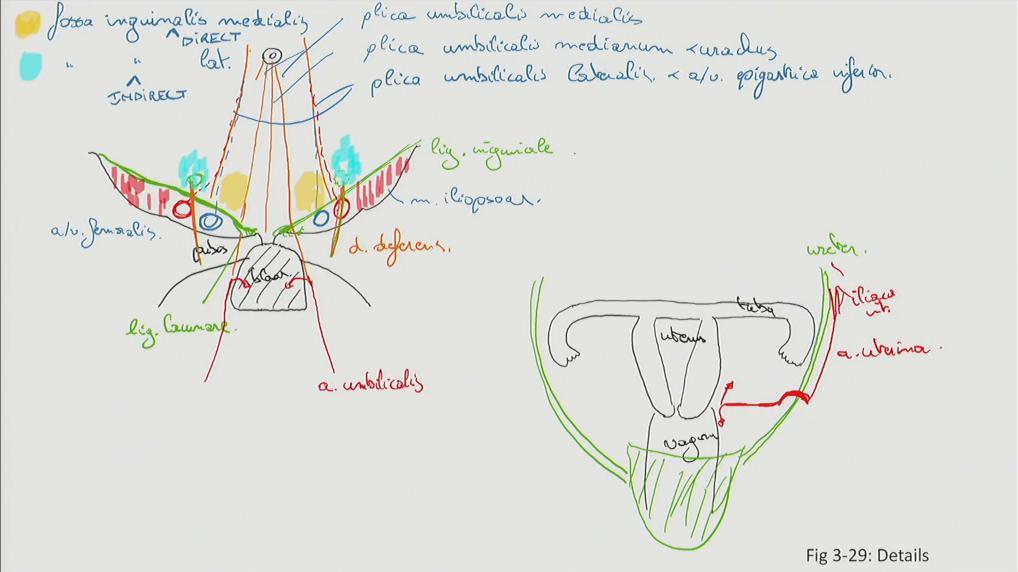 fossa inguinalis medialis
^DIRECT
" " lat.
^
INDIRECT
plica umbilicalis medialis
plica umbilicalis medianum < urachus
plica umbilicalis lateralis. < a/v. epigastrica inferior.
lig. inguinale.
m. iliopsoas.
a/v. femoralis.
pubis
d. deferens.
blaas.
lig. lacunare.
a. umbilicalis
ureter.
a. iliaca int.
tuba
uterus
a. uterina.
vagina
Fig 3-29: Details